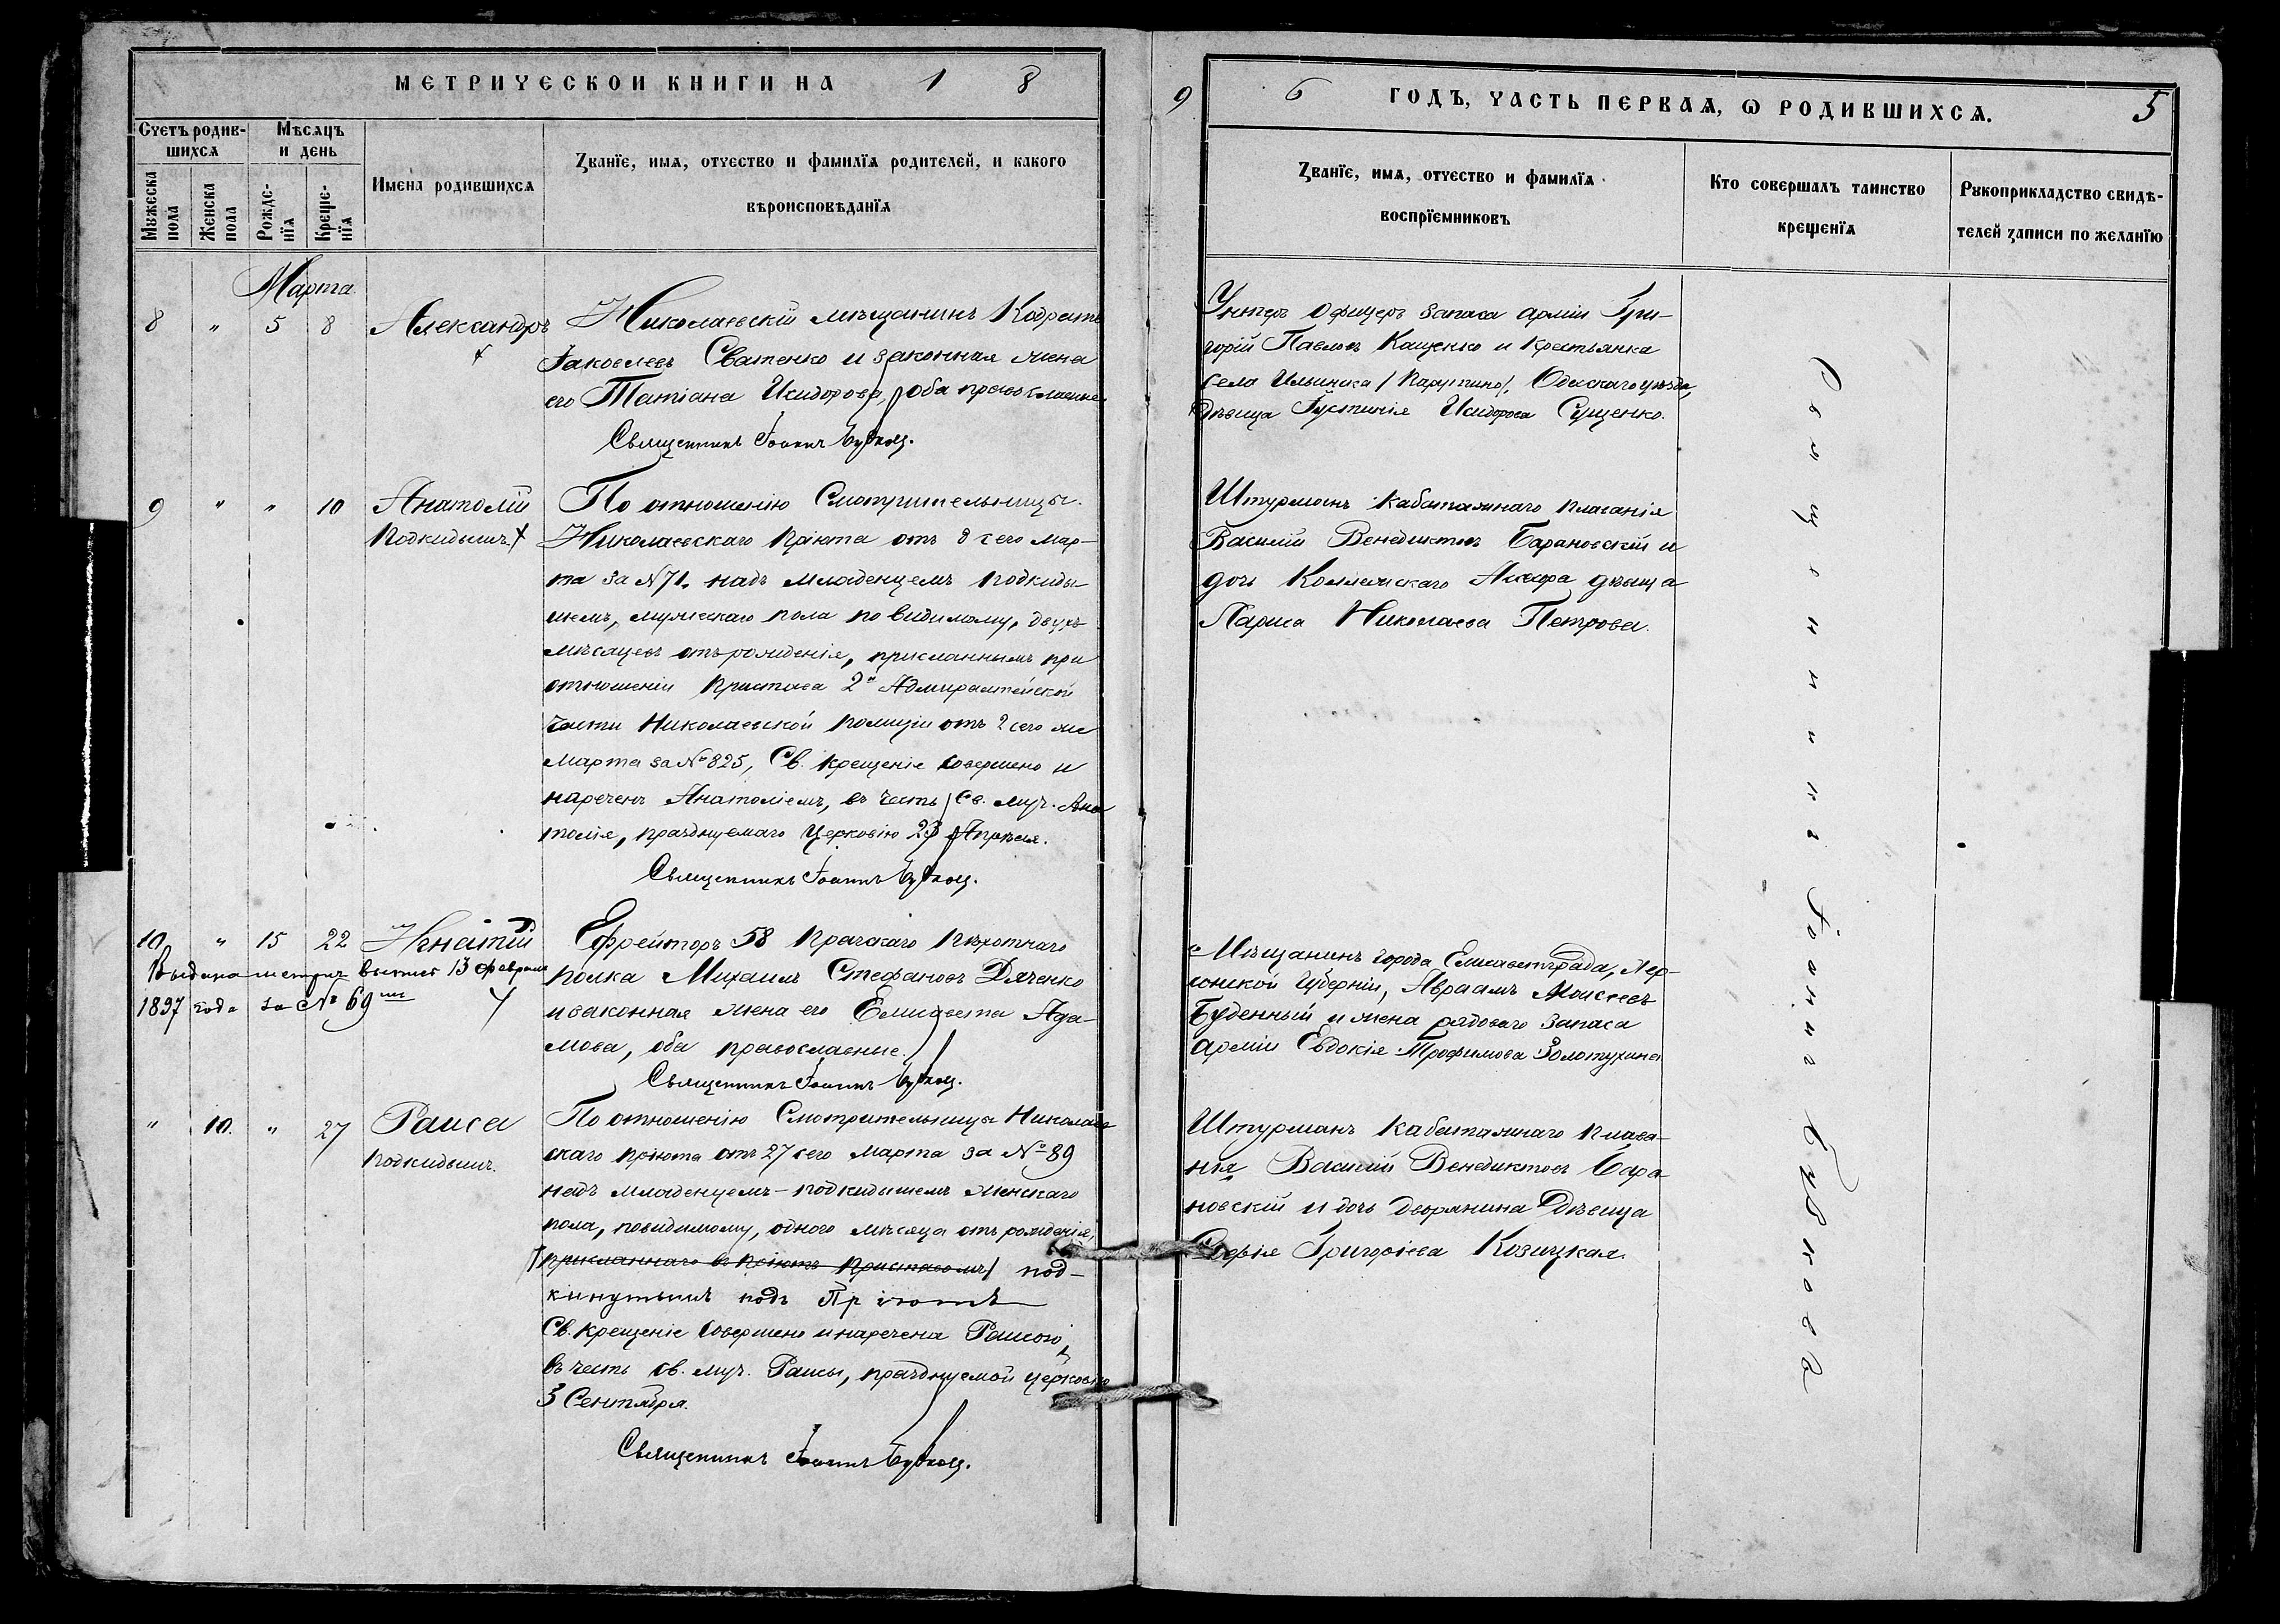 МЕТРИЧЕСКОЙ КНИГИ НА 1 8
9 6 ГОДЪ, ЧАСТЬ ПЕРВАЯ, Ѡ РОДИВШИХСЯ. 5
Счетъ родив-
шихся
Мѣсяцъ
и день
Мужеска
пола
Женска
пола
Рожде-
нїя
Креще-
нїя
Имена родившихся
Званїе, имя, отчество и фамилїя родителей, и какого
вѣроисповѣданїя
Званїе, имя, отчество и фамилїя
воспрїемниковъ
Кто совершалъ таинство
крещенїя
Рукоприкладство свидѣ-
телей записи по желанїю
Марта
8 " 5 8 Александръ
Николаевскій мѣщанинъ Кодратъ
Іаковлевъ Сватенко и законная жена
его Татіана Исидорова, оба православные
Священникъ Іоаннъ
Унтеръ Офицеръ запаса арміи Гри-
горій Павловъ Кащенко и крестьянка
села Ильинска /Парутино/, Одесскаго уѣзда,
дѣвица Іустинія Исидорова Сущенко.
9 " " 10 Анатолій
Подкидышъ
По отношенію Смотрительницы
Николаевскаго Пріюта отъ 8 сего Мар-
та за N 71. надъ младенцемъ подкиды-
шемъ, мужескаго пола по видимому, двухъ
мѣсяцевъ отъ рожденія, присланнымъ при
отношеніи Пристава 2й Адмиралтейской
части Николаевской полиціи отъ 2 сего же
Марта за № 825, Св. крещеніе совершено и
нареченъ Анатоліемъ, въ честь Св. муч. Ана
толія, празднуемаго Церковію 23 Апрѣля.
Священникъ Іоаннъ
Штурманъ каботажнаго плаванія
Василій Венедиктовъ Барановскій и
дочь Коллежскаго Ассесора дѣвица
Лариса Николаева Петрова.
10 " 15 22 Игнатій
Выдана метрич. выпись 13 февраля
1897 года за № 69
Ефрейторъ 58 Прагскаго Пѣхотнаго
полка Михаилъ Стефановъ Дяченко
и законная жена его Елисавета Ада-
мова, оба православные.
Священникъ Іоаннъ
Мѣщанинъ города Елисаветграда, Хер-
сонской Губерніи, Авраамъ Моисеевъ
Буденный и жена рядоваго запаса
арміи Евдокія Трофимова Золотухина
" 10. " 27 Раиса
подкидышъ.
По отношенію Смотрительницы Николаев
скаго пріюта отъ 27 сего Марта за № 89
надъ младенцемъ-подкидышемъ женскаго
пола, повидимому, одного мѣсяца отъ рожденія,
/присланнаго въ пріютъ Приставомъ/ под-
кинутымъ подъ Пріютъ
Св. крещеніе совершено и наречена Раисою,
въ честь св. муч. Раисы, празднуемой церковію
5 Сентября.
Священникъ Іоаннъ
Штурманъ каботажнаго плава-
нія Василій Венедиктовъ Бара-
новскій и дочь дворянина дѣвица
Софія Григоріева Козицкая.
Священникъ Іоаннъ